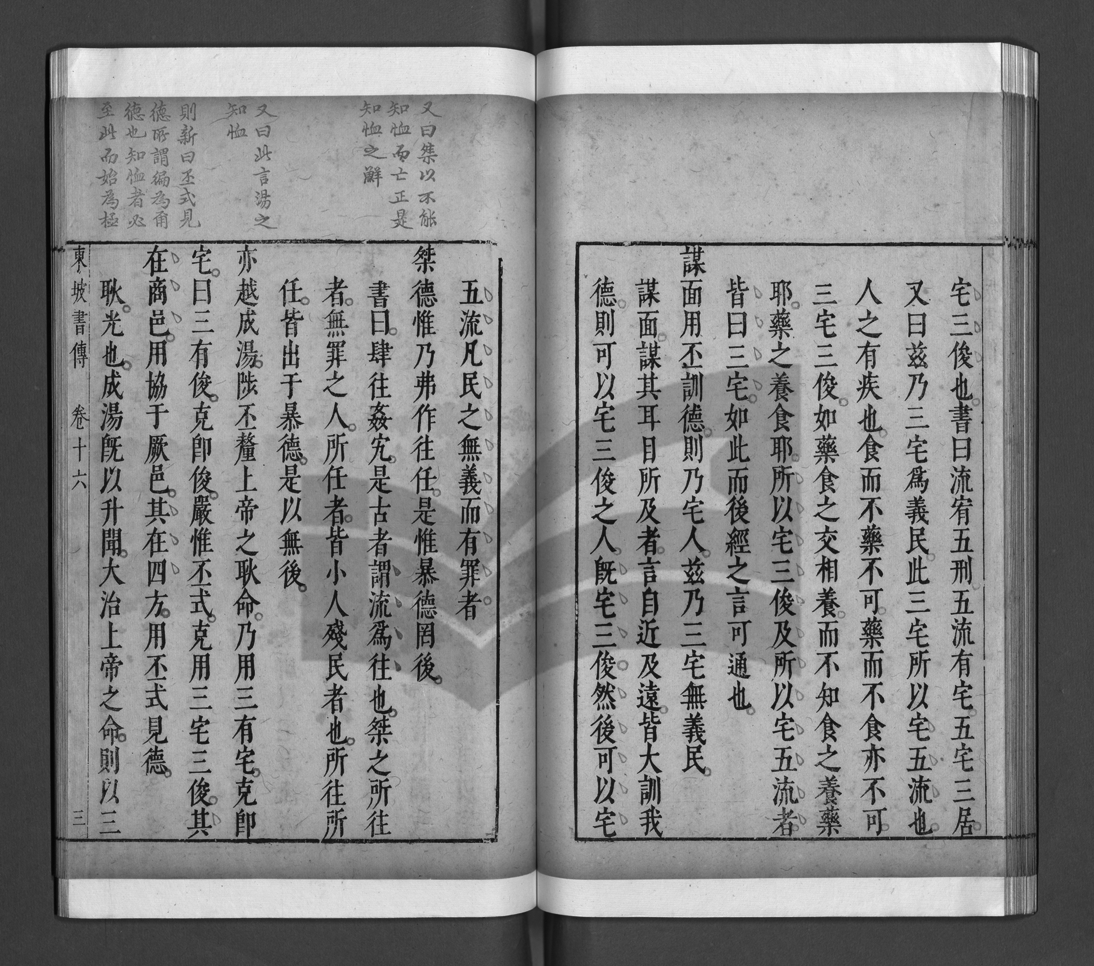 宅三俊也書曰流宥五刑五流有宅五宅三居
又曰茲乃三宅爲義民此三宅所以宅五流也
人之有疾也食而不藥不可藥而不食亦不可
三宅三俊如藥食之交相養而不知食之養藥
耶藥之養食耶所以宅三俊及所以宅五流者
皆曰三宅如此而後經之言可通也
謀面用丕訓德則乃宅人茲乃三宅無義民
謀面謀其耳目所及者言自近及遠皆大訓我
德則可以宅三俊之人旣宅三俊然後可以宅
五流凡民之無義而有罪者
桀德惟乃弗作往任是惟暴德罔後
書曰肆往姦宄是古者謂流爲往也桀之所往
者無罪之人所任者皆小人殘民者也所往所
任皆出于暴德是以無後
亦越成湯陟丕釐上帝之耿命乃用三有宅克卽
宅曰三有俊克卽俊嚴惟丕式克用三宅三俊其
在商邑用協于厥邑其在四方用丕式見德
耿光也成湯旣以升聞大治上帝之命則以三
東坡書傳 卷十六 三
又曰桀以不能
知恤而亡正是
知恤之辭
又曰此言湯之
知恤
則新曰丕式見
德所謂編為甫
德也知恤者必
至此而始為極